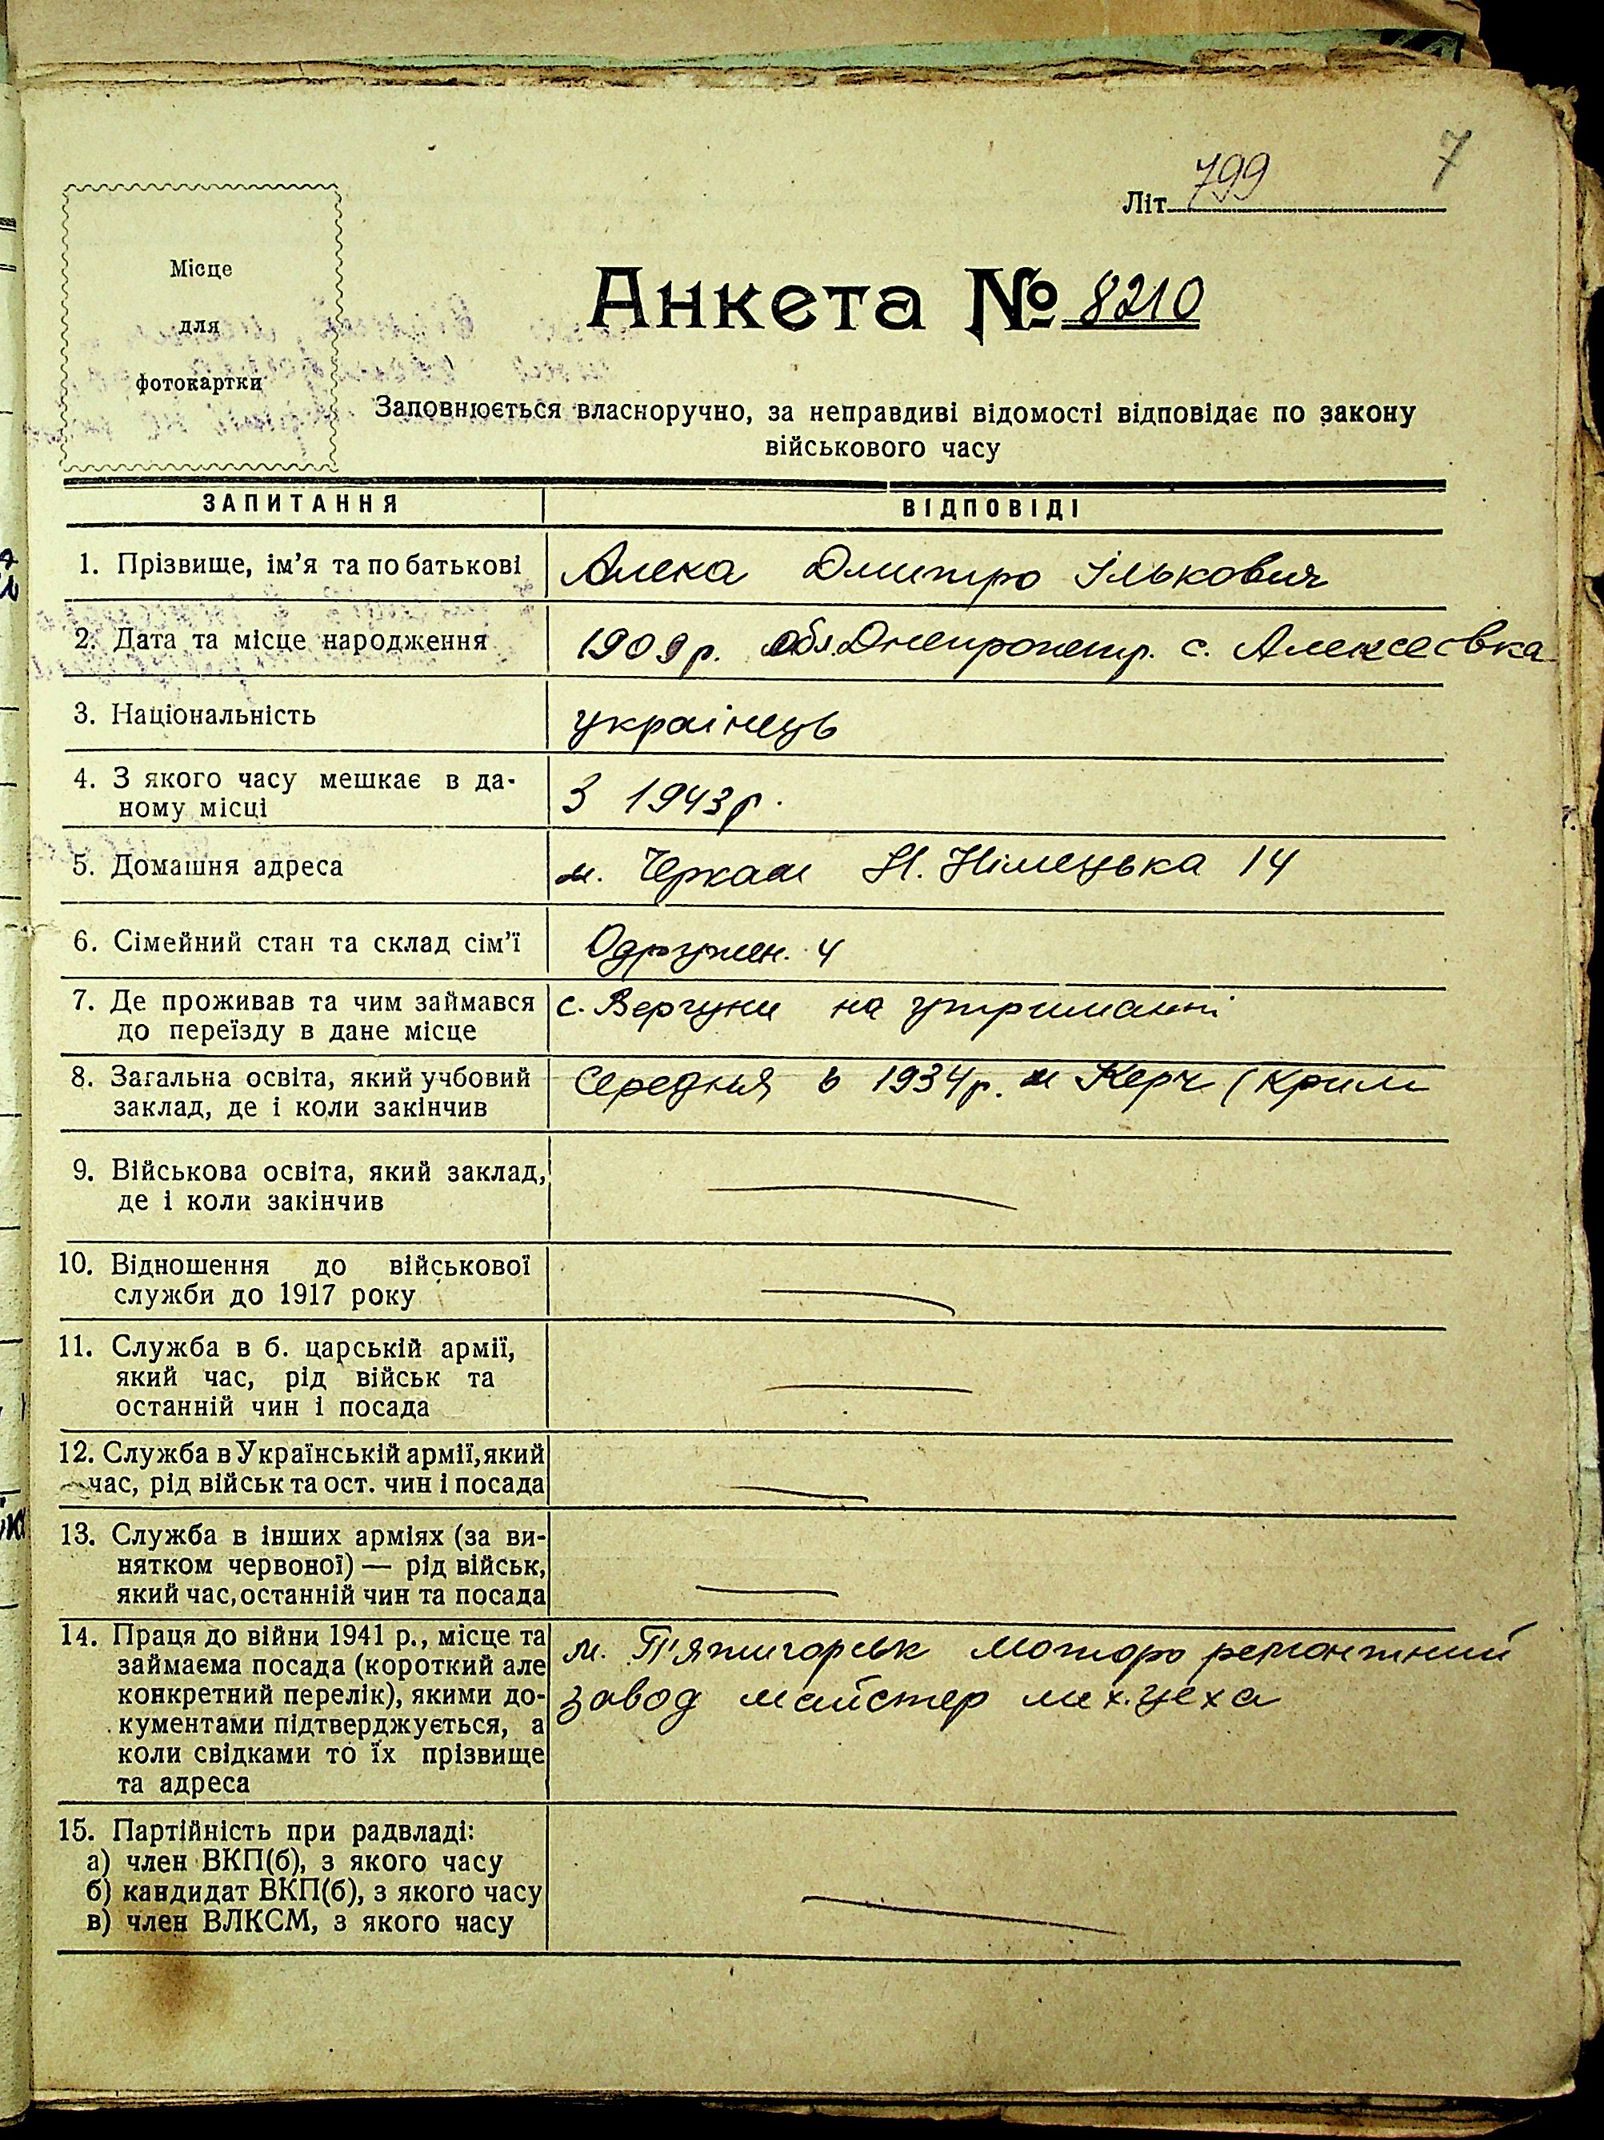 7
Літ 799
Місце
для
фотокартки
Анкета № 8210
Заповнюється власноручно, за неправдиві відомості відповідає по закону
військового часу
ЗАПИТАННЯ
ВІДПОВІДІ
1. Прізвище, ім’я та по батькові
Алека Дмитро Ількович
2. Дата та місце народження
1909 р. обл. Днепропетр. с. Алексеевка
3. Національність
украінець
4. З якого часу мешкає в да-
ному місці
З 1943 р.
5. Домашня адреса
м. Черкаси Н. Німецька 14
6. Сімейний стан та склад сім’ї
Одружен. 4
7. Де проживав та чим займався
до переїзду в дане місце
с. Вергуни на утриманні
8. Загальна освіта, який учбовий
заклад, де і коли закінчив
Середня в 1934 р. м Керч (Крим
9. Військова освіта, який заклад,
де і коли закінчив
10. Відношення до військової
служби до 1917 року
11. Служба в б. царській армії,
який час, рід військ та
останній чин і посада
12. Служба в Українській армії, який
час, рід військ та ост. чин і посада
13. Служба в інших арміях (за ви-
нятком червоної) — рід військ,
який час, останній чин та посада
14. Праця до війни 1941 р., місце та
займаєма посада (короткий але
конкретний перелік), якими до-
кументами підтверджується, а
коли свідками то їх прізвище
та адреса
м. П'ятигорськ моторо ремонтний
завод майстер мех. цеха
15. Партійність при радвладі:
а) член ВКП(б), з якого часу
б) кандидат ВКП(б), з якого часу
в) член ВЛКСМ, з якого часу